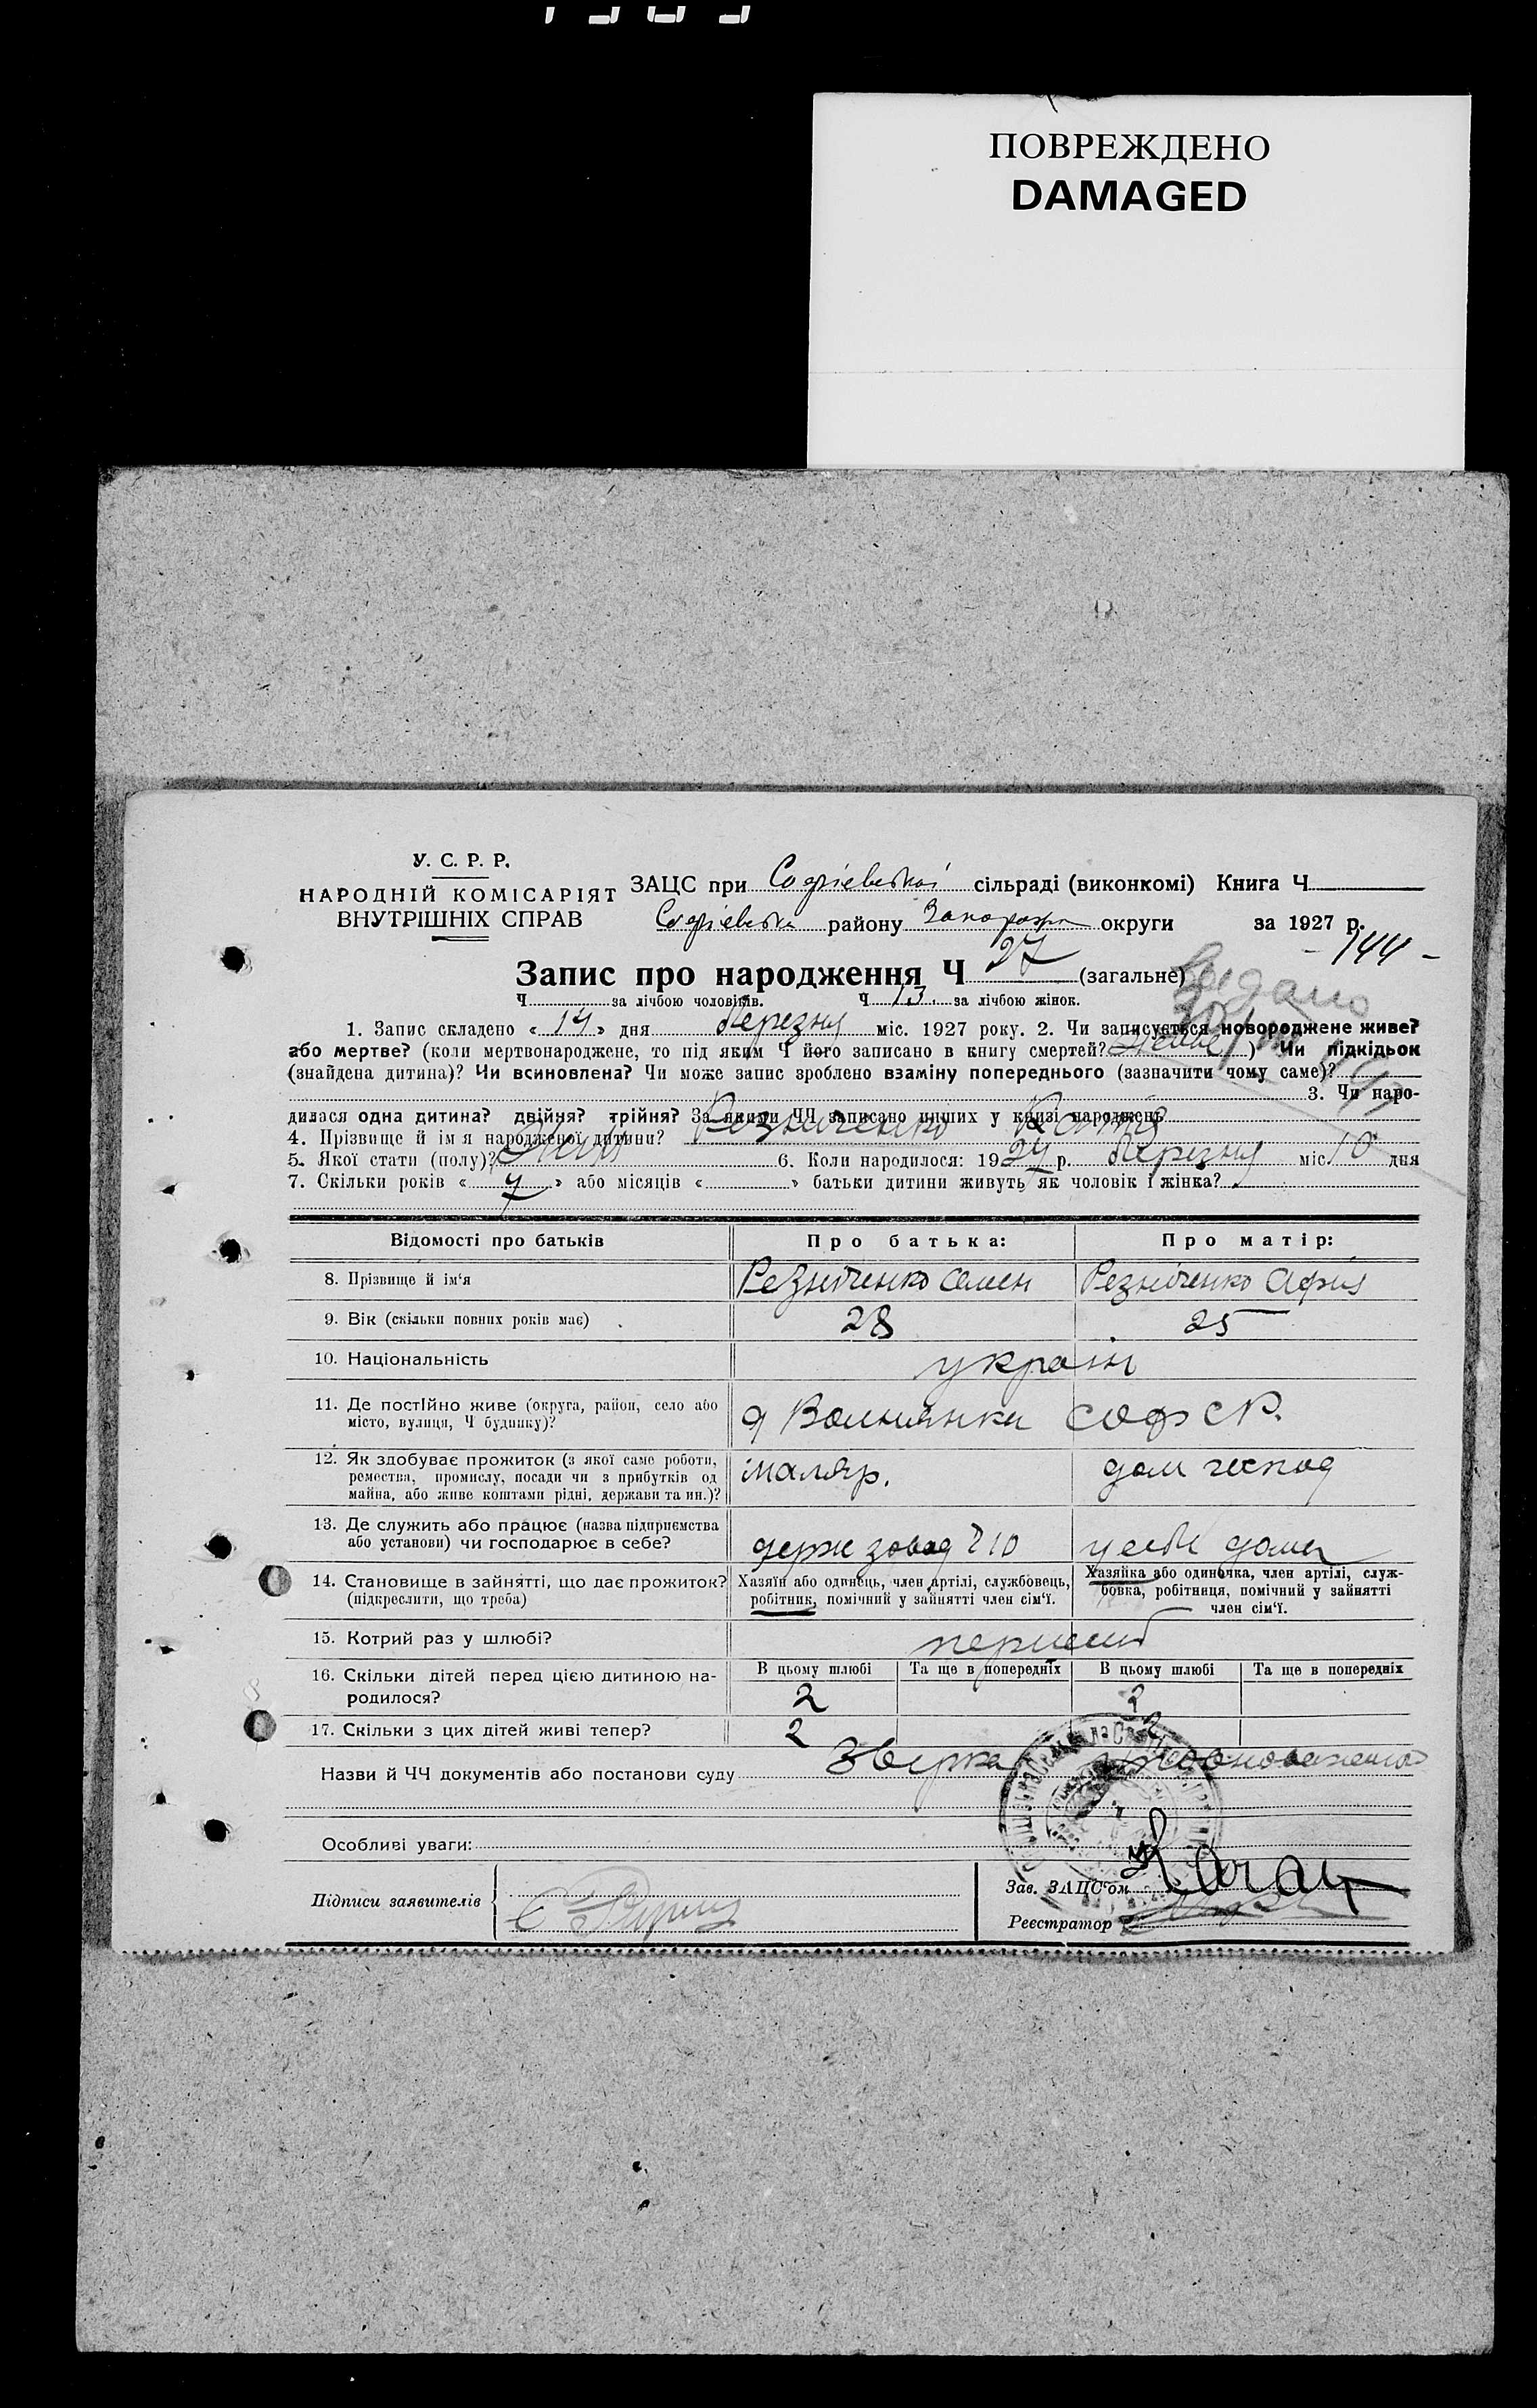 ПОВРЕЖДЕНО
DAMAGED
У. С. Р. Р.
НАРОДНІЙ КОМІСАРІЯТ
ВНУТРІШНІХ СПРАВ
ЗАЦС при Софієвської сільраді (виконкомі) Книга Ч
Софієвськ району Запорозьк округи за 1927 р.
- 144 -
Запис про народження Ч 27 (загальне)
Видано
Ч за лічбою чоловіків. Ч 13. за лічбою жінок.
1. Запис складено « 14 » дня Березня міс. 1927 року. 2. Чи записується новороджене живе?
або мертве? (коли мертвонароджене, то під яким Ч його записано в книгу смертей? ) Чи підкідьок
(знайдена дитина)? Чи всиновлена? Чи може запис зроблено взаміну попереднього (зазначити чому саме)?
3. Чи наро-
дилася одна дитина? двійня? трійня? За якими ЧЧ записано инших у книзі народжень
4. Прізвище й імя народженої дитини? Резниченко
5. Якої стати (полу)? 6. Коли народилося: 1927 р. Березня міс. 10 дня
7. Скільки років « 7 » або місяців « » батьки дитини живуть як чоловік і жінка?
Відомості про батьків Про батька: Про матір:
8. Прізвище й ім'я Резніченко Семен Резніченко
9. Вік (скільки повних років має) 28 25
10. Національність україн
11. Де постійно живе (округа, район, село або
місто, вулиця, Ч будинку)? Софср.
12. Як здобуває прожиток (з якої саме роботи,
ремества, промислу, посади чи з прибутків од
майна, або живе коштами рідні, держави та ин.)? маляр. дом господ
13. Де служить або працює (назва підприємства
або установи) чи господарює в себе? держ завод 10 у себе дома
14. Становище в зайнятті, що дає прожиток?
(підкреслити, що треба)
Хазяїн або одинець, член артілі, службовець,
робітник, помічний у зайнятті член сім'ї.
Хазяйка або одиночка, член артілі, служ-
бовка, робітниця, помічний у зайнятті
член сім'ї.
15. Котрий раз у шлюбі? перший
16. Скільки дітей перед цією дитиною на-
родилося?
В цьому шлюбі Та ще в попередніх В цьому шлюбі Та ще в попередніх
2 2
17. Скільки з цих дітей живі тепер? 2 2
Назви й ЧЧ документів або постанови суду
Особливі уваги:
Підписи заявителів
Зав. ЗАЦС'ом
Реєстратор